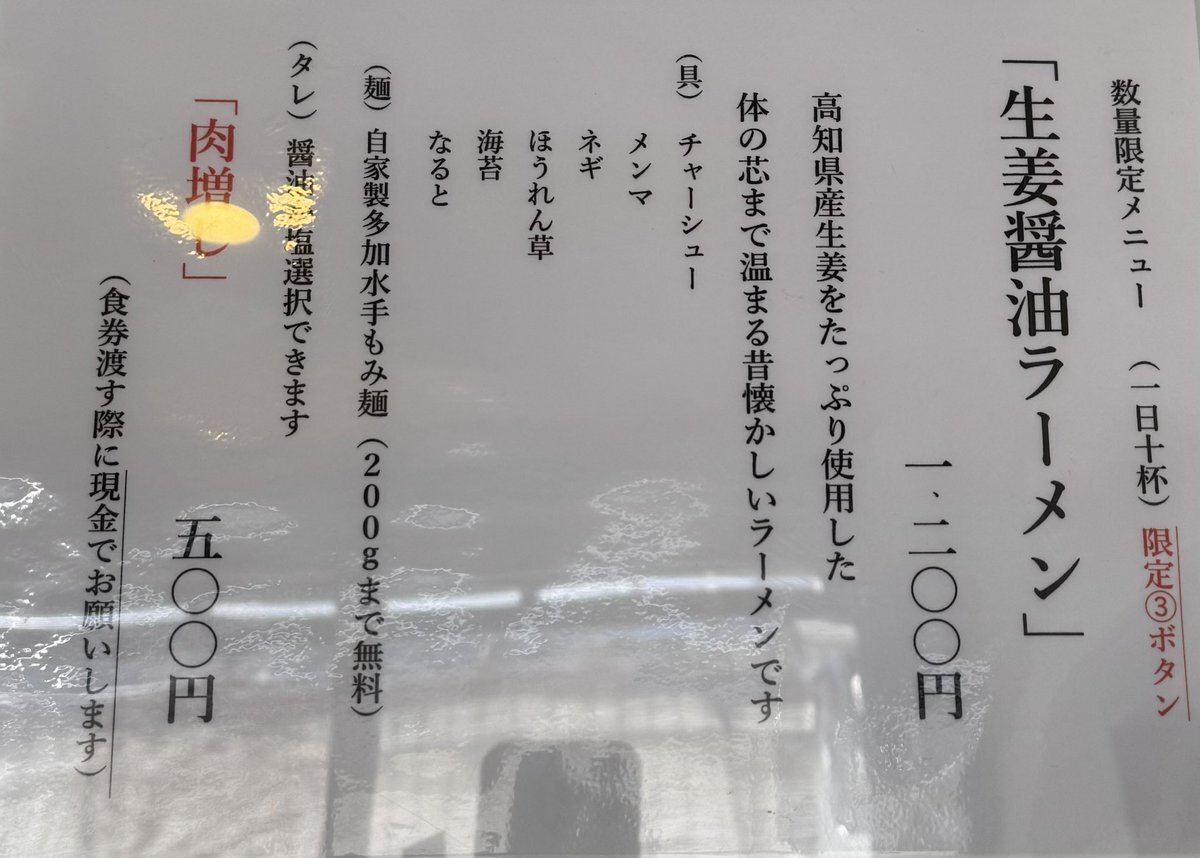 数量限定メニュー （一日十杯）限定③ボタン
「生姜醤油ラーメン」
一、二〇〇円
高知県産生姜をたっぷり使用した
体の芯まで温まる昔懐かしいラーメンです
（具）チャーシュー
メンマ
ネギ
ほうれん草
海苔
なると
（麺）自家製多加水手もみ麺（200gまで無料）
（タレ）醤油 塩選択できます
「肉増し」
五〇〇円
（食券渡す際に現金でお願いします）